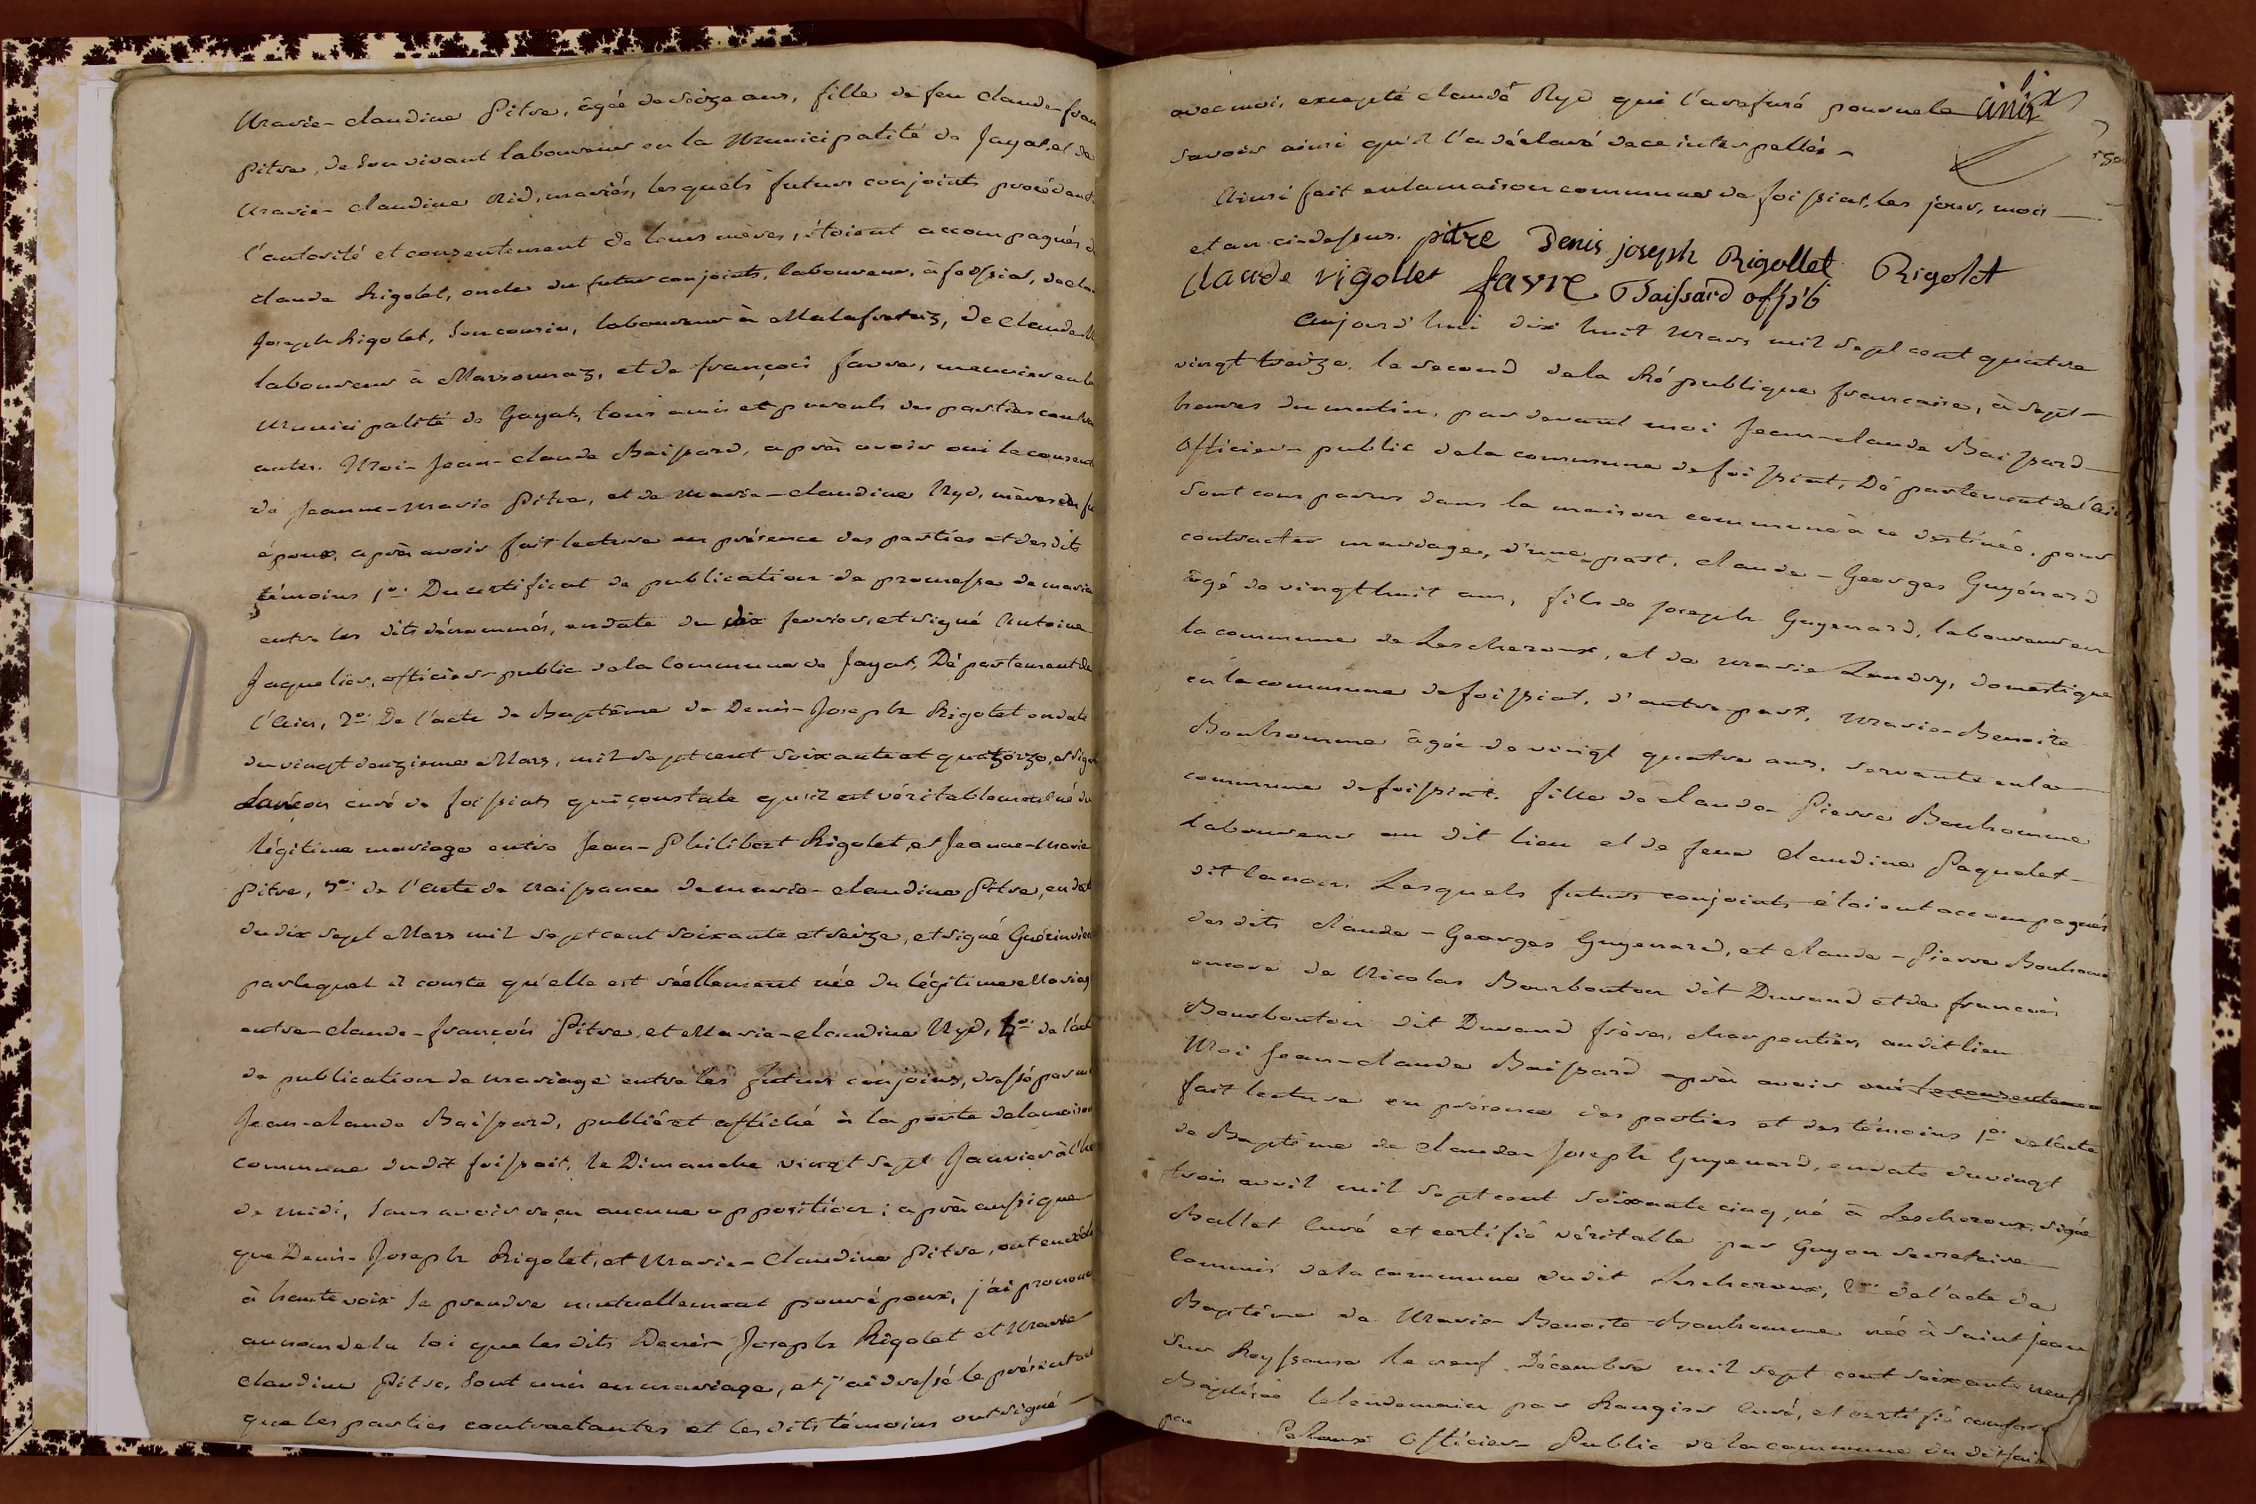 Marie-claudine Pitre, âgée de seize ans, fille de feu claude-fran
Pitre, de son vivant laboureur en la Municipalité de Jayat et de
Marie-claudine Rid, mariés, lesquels futurs conjoints procédent de
l'autorité et consentement de leurs mères, étoient accompagnés d
claude Rigolet, oncle du futur conjoints, laboureur, à foissiat, de clau
Joseph Rigolet, son cousin, laboureur à Malafretaz, de claude
laboureur à Marsonnaz, et de françois favre, menuisier en la
Municipalité de Gayat, tous amis et parents des parties contra
antes. Moi Jean-claude Baissard, après avoir oui le consent
de Jeanne-Marie Pitre, et de Marie-claudine Ryd, mères des fu
époux, après avoir fait lecture en présence des parties et des dits
témoins 1o. Du certificat de publication de promesse de maria
entre les dits dénommés, en date du dix fevrier, et signé Antoine
Jaquelier, officier public de la Commune de Jayat, Département de
l'Ain, 2o. De l'acte de Baptême de Denis-Joseph Rigolet en date
du vingt deuzieme Mars, mil sept cent soixante et quatzorze, et sign
curé de foissiat, qui constate qu'il est véritablement né du
légitime mariage entre Jean-Philibert Rigolet, et Jeanne-Marie
Pitre, 3o. de l'acte de Naissance de Marie-claudine Pitre, en dat
du dix sept Mars mil sept cent soixante et seize, et signé Guérin vica
par lequel il conste qu'elle est réellement née du légitime Mariag
entre-claude-françois Pitre, et Marie-claudine Ryd, 4o. de l'act
de publication de mariage entre les futurs conjoins, dressé par m
Jean-claude Baissard, publié et affiché à la porte de la maison
commune dudit foissait, le Dimanche vingt sept Janvier à l'he
de midi, sans avoir reçu aucune opposition; après aussi que
que Denis-Joseph Rigolet, et Marie-Claudine Pitre, ont en décla
à haute voix se prendre mutuellement pour époux, j'ai pronon
au nom de la loi que les dits Denis-Joseph Rigolet et Marie
claudine Pitre, sont unis en mariage, et j'ai dressé le présent act
que les parties contractantes et les dits témoins ont signé
avec moi, excepté claude Ryd qui l'a refusé pour ne le
savoir ainsi qu'il l'a déclaré de ce interpellé.
Ainsi fait en la maison commune de foissiat, les jour, mois
et an ci-dessus. pitre Denis joseph Rigollet Rigolet
claude rigollet favre Baissard off. p.
Aujourd'hui dix huit Mars mil sept cent quatre
vingt treize, le second de la République française, à sept
heures du matin, par devant moi Jean-claude Baissard
Officier public de la commune de foissiat, Département de l'Ain
sont comparus dans la maison commune à ce destinée, pour
contracter mariage, d'une part, claude-Georges Guyénard
âgé de vingt huit ans, fils de Joseph Guyenard, laboureur en
la commune de Lescheroux, et de Marie Landry, domestique
en la commune de foissiat, d'autre part, Marie-Benoite
Bonhomme âgée de vingt quatre ans, servante en la
commune de foissiat, fille de claude Pierre Bonhomme
laboureur au dit lieu et de feue claudine Paquelet
dit lanoir. Lesquels futurs conjoints étoient accompagnés
des dits claude-Georges Guyenard, et claude-Pierre Bonhome
encore de Nicolas Bourbouton dit Durand et de françois
Bourbouton dit Durand frères, charpentiers au dit lieu
Moi Jean-claude Baissard après avoir oui le consentemen
fait lecture en présence des parties et des témoins 1o. de l'acte
de Baptême de claude Joseph Guyenard, en date du vingt
trois avril mil sept cent soixante cinq, né à Lescheroux, signé
Ballet Curé et certifié véritable par Guyon secretaire
Commis de la commune dudit Lescheroux, 2o. de l'acte de
Baptême de Marie-Benoite Bonhomme née à Saint Jean
sur Reyssouse le neuf Décembre mil sept cent soixante neuf
Baptisée le lendemain par Rangier Curé, et certifié conform
par Officier Public de la commune du dit sain